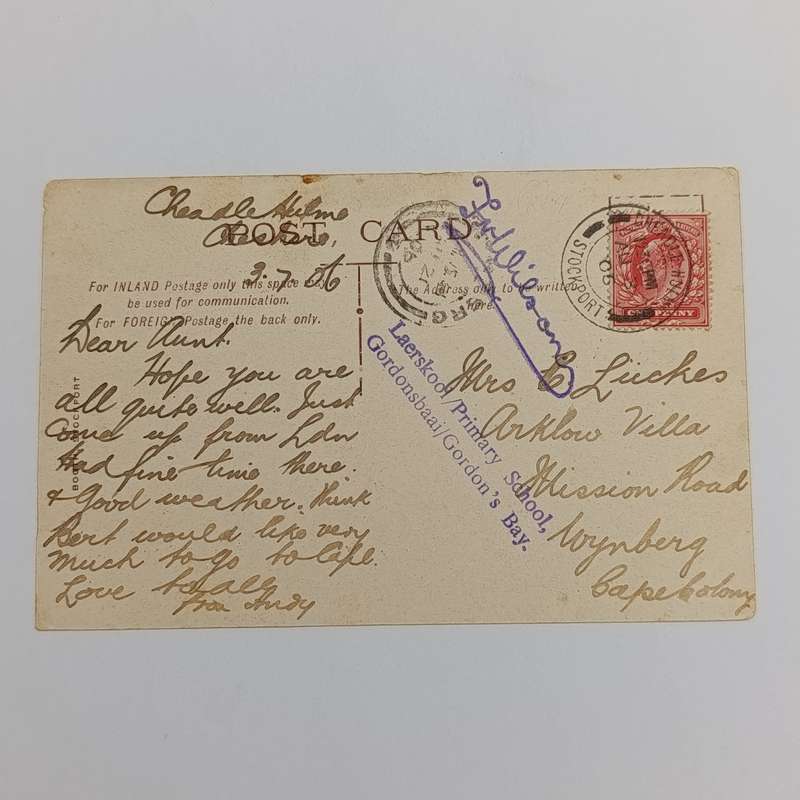 Cheadle Hulme
Cheshire,
3.7.06
POST CARD
For INLAND Postage only this space
be used for communication.
For FOREIGN Postage the back only.
The Address only to be written
here.
Dear Aunt.
Hope you are
all quite well. Just
Come up from Ldn
Had fine time there.
& Good weather. Think
Bert would like very
much to go to Cape.
Love to all
from Andy
Mrs E Luckes
Arklow Villa
Mission Road
Wynberg
Cape Colony
CHEADLE HULME
STOCKPORT
ONE PENNY
Laerskool/Primary School,
Gordonsbaai/Gordon's Bay.
Wilson